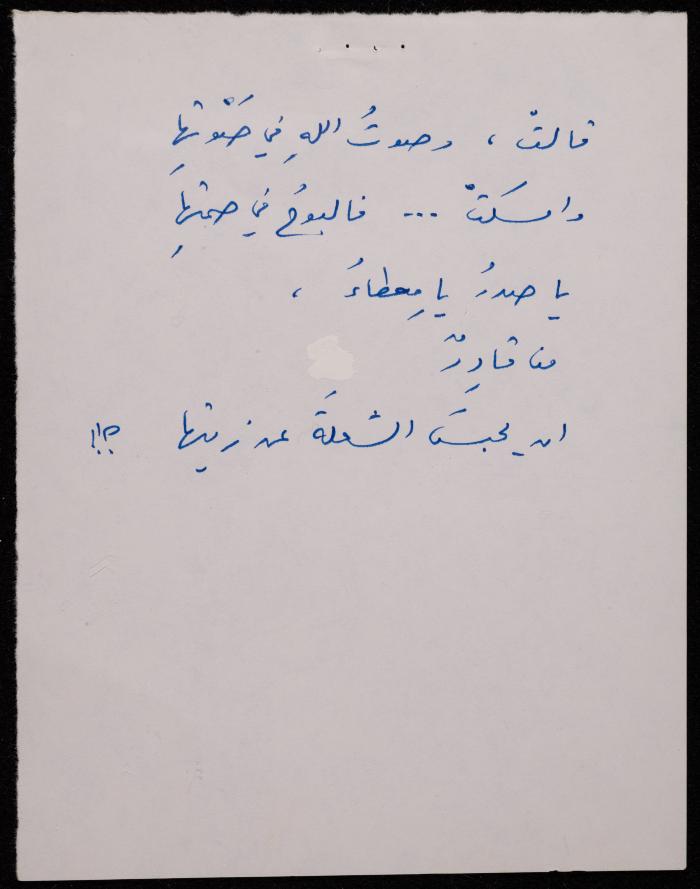 قالتْ ، وصوتُ اللهِ في صَوْتِها
وامسكتْ ... فالبوحُ في صمتِها
يا صدرُ يا مِعطاءُ ،
من قادِرٌ
ان يحبسَ الشعلةَ عن زيتها ؟!!